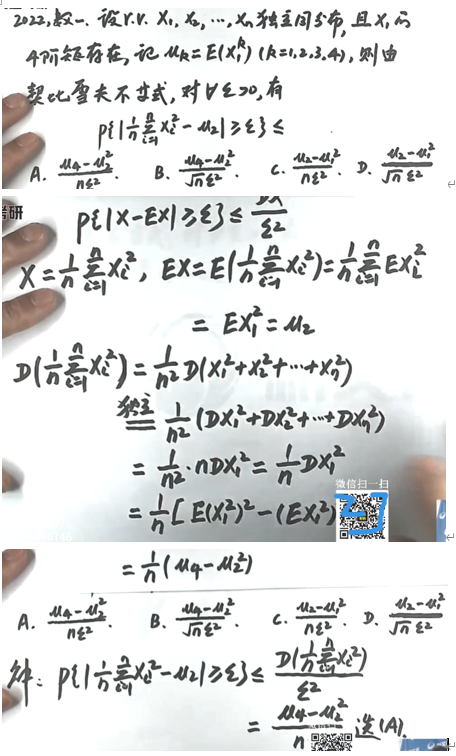 2022,数一. 设r.v. X₁, X₂, …, Xₙ独立同分布, 且X₁的
4阶矩存在, 记 μₖ=E(X₁ᵏ) (k=1,2,3,4), 则由
契比雪夫不等式, 对∀ε>0, 有
P{|1/n ∑ᵢ₌₁ⁿ Xᵢ² − μ₂| ≥ ε} ≤
A. (μ₄−μ₂²)/(nε²). B. (μ₄−μ₂²)/(√n ε²). C. (μ₂−μ₁²)/(nε²). D. (μ₂−μ₁²)/(√n ε²)
考研
P{|X−EX| ≥ ε} ≤ DX/ε²
X = 1/n ∑ᵢ₌₁ⁿ Xᵢ², EX = E(1/n ∑ᵢ₌₁ⁿ Xᵢ²) = 1/n ∑ᵢ₌₁ⁿ EXᵢ²
= EX₁² = μ₂
D(1/n ∑ᵢ₌₁ⁿ Xᵢ²) = 1/n² D(X₁²+X₂²+…+Xₙ²)
独立
= 1/n² (DX₁²+DX₂²+…+DXₙ²)
= 1/n² · nDX₁² = 1/n DX₁²
微信扫一扫
= 1/n [E(X₁²)² − (EX₁²)
27
= 1/n (μ₄−μ₂²)
A. (μ₄−μ₂²)/(nε²). B. (μ₄−μ₂²)/(√n ε²). C. (μ₂−μ₁²)/(nε²). D. (μ₂−μ₁²)/(√n ε²)
解: P{|1/n ∑ᵢ₌₁ⁿ Xᵢ² − μ₂| ≥ ε} ≤ D(1/n ∑ᵢ₌₁ⁿ Xᵢ²)/ε²
= (μ₄−μ₂²)/n 选(A).